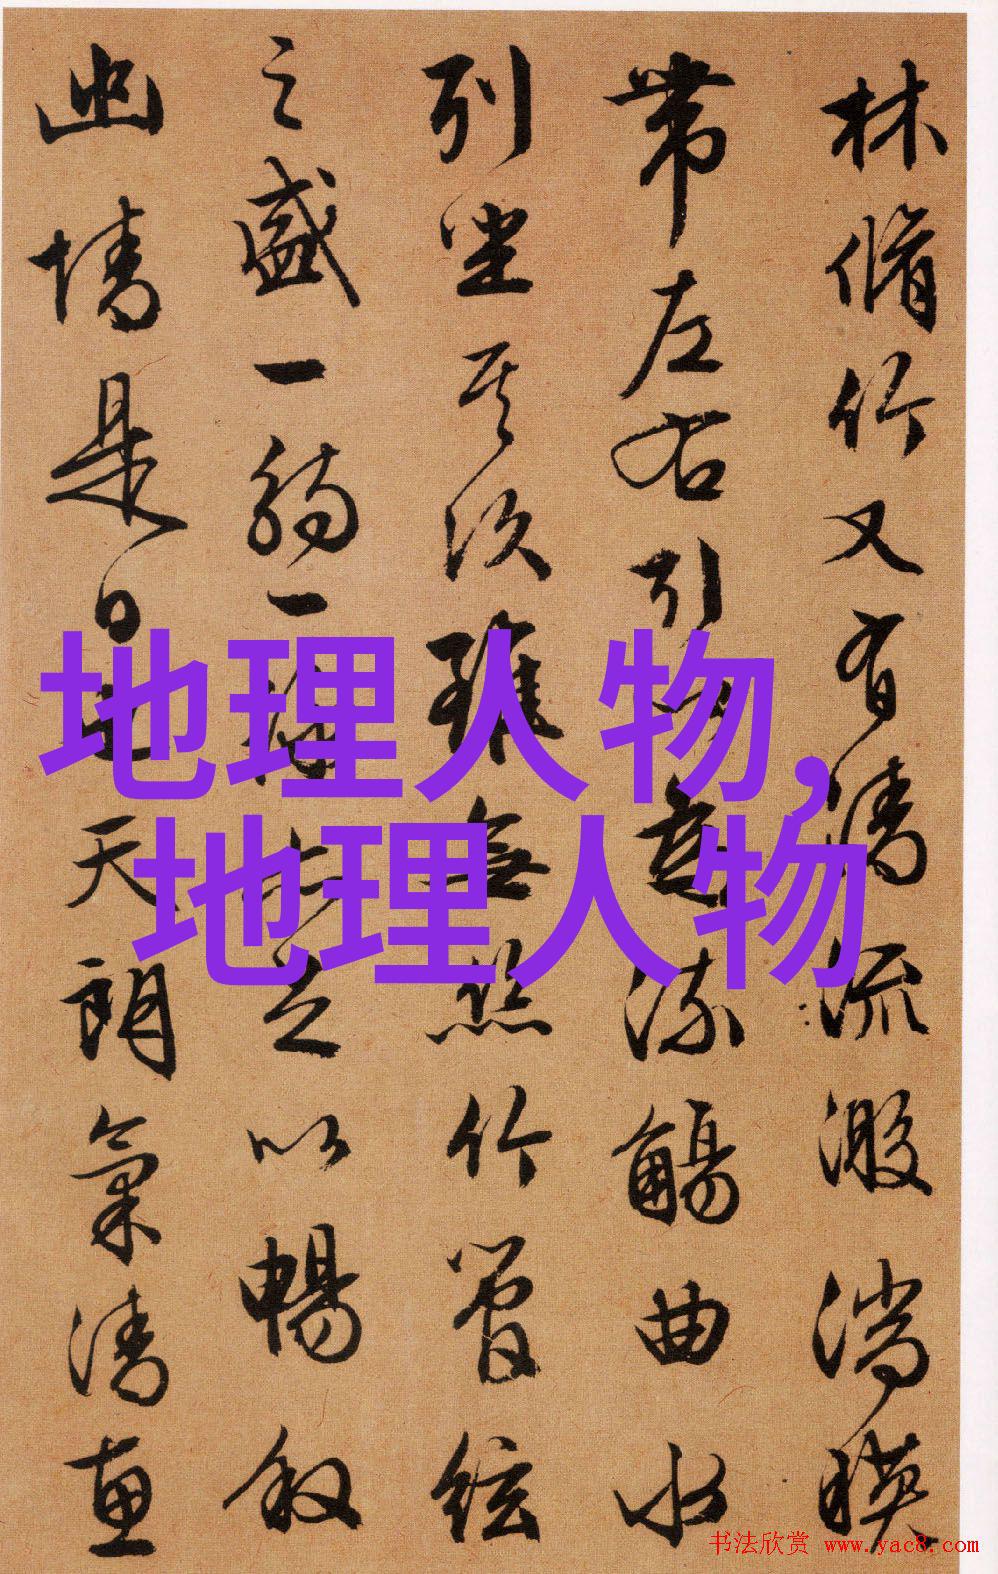 林脩竹又有清流激湍暎
帶左右引以為流觴曲水
列坐其次雖無絲竹管絃
之盛一觴一詠亦足以暢叙
幽情是日也天朗氣清惠
地理人物，
地理人物
书法欣赏 www.yac8.com